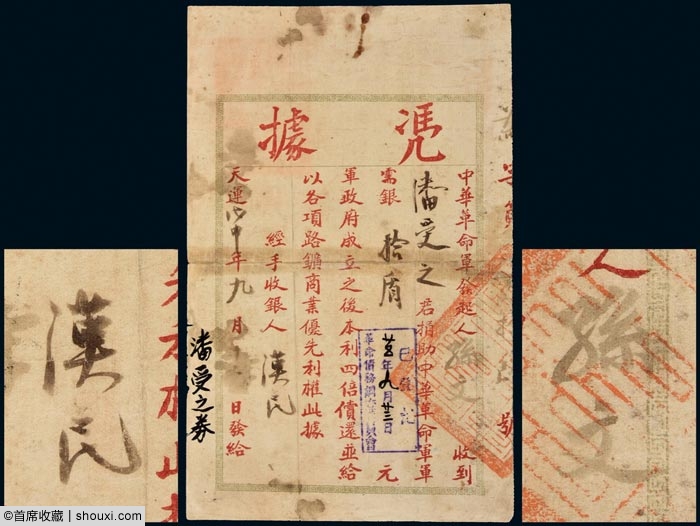 凴據
中華革命軍發起人 孫文 收到
潘受之 君捐助中華革命軍軍
需銀 拾盾 元
軍政府成立之後本利四倍償還並給
以各項路鑛商業優先利權此據
經手收銀人 漢民
天運戊申年九月十日發給
潘受之券
號
已登記
年九月廿三日
革命債務調查委員會
漢民
孫文
人
©首席收藏 | shouxi.com